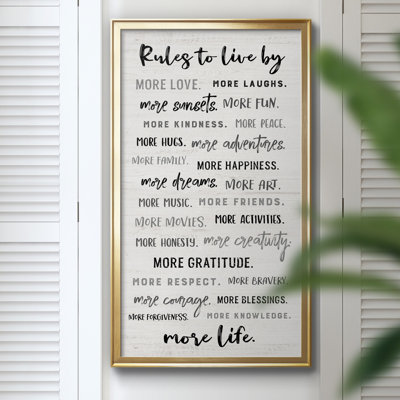 Rules to live by
MORE LOVE. MORE LAUGHS.
more sunsets. MORE FUN.
MORE KINDNESS. MORE PEACE.
MORE HUGS. more adventures.
MORE FAMILY. MORE HAPPINESS.
more dreams. MORE ART.
MORE MUSIC. MORE FRIENDS.
MORE MOVIES. MORE ACTIVITIES.
MORE HONESTY. more creativity.
MORE GRATITUDE.
MORE RESPECT. MORE BRAVERY.
more courage. MORE BLESSINGS.
MORE FORGIVENESS. MORE KNOWLEDGE.
more life.